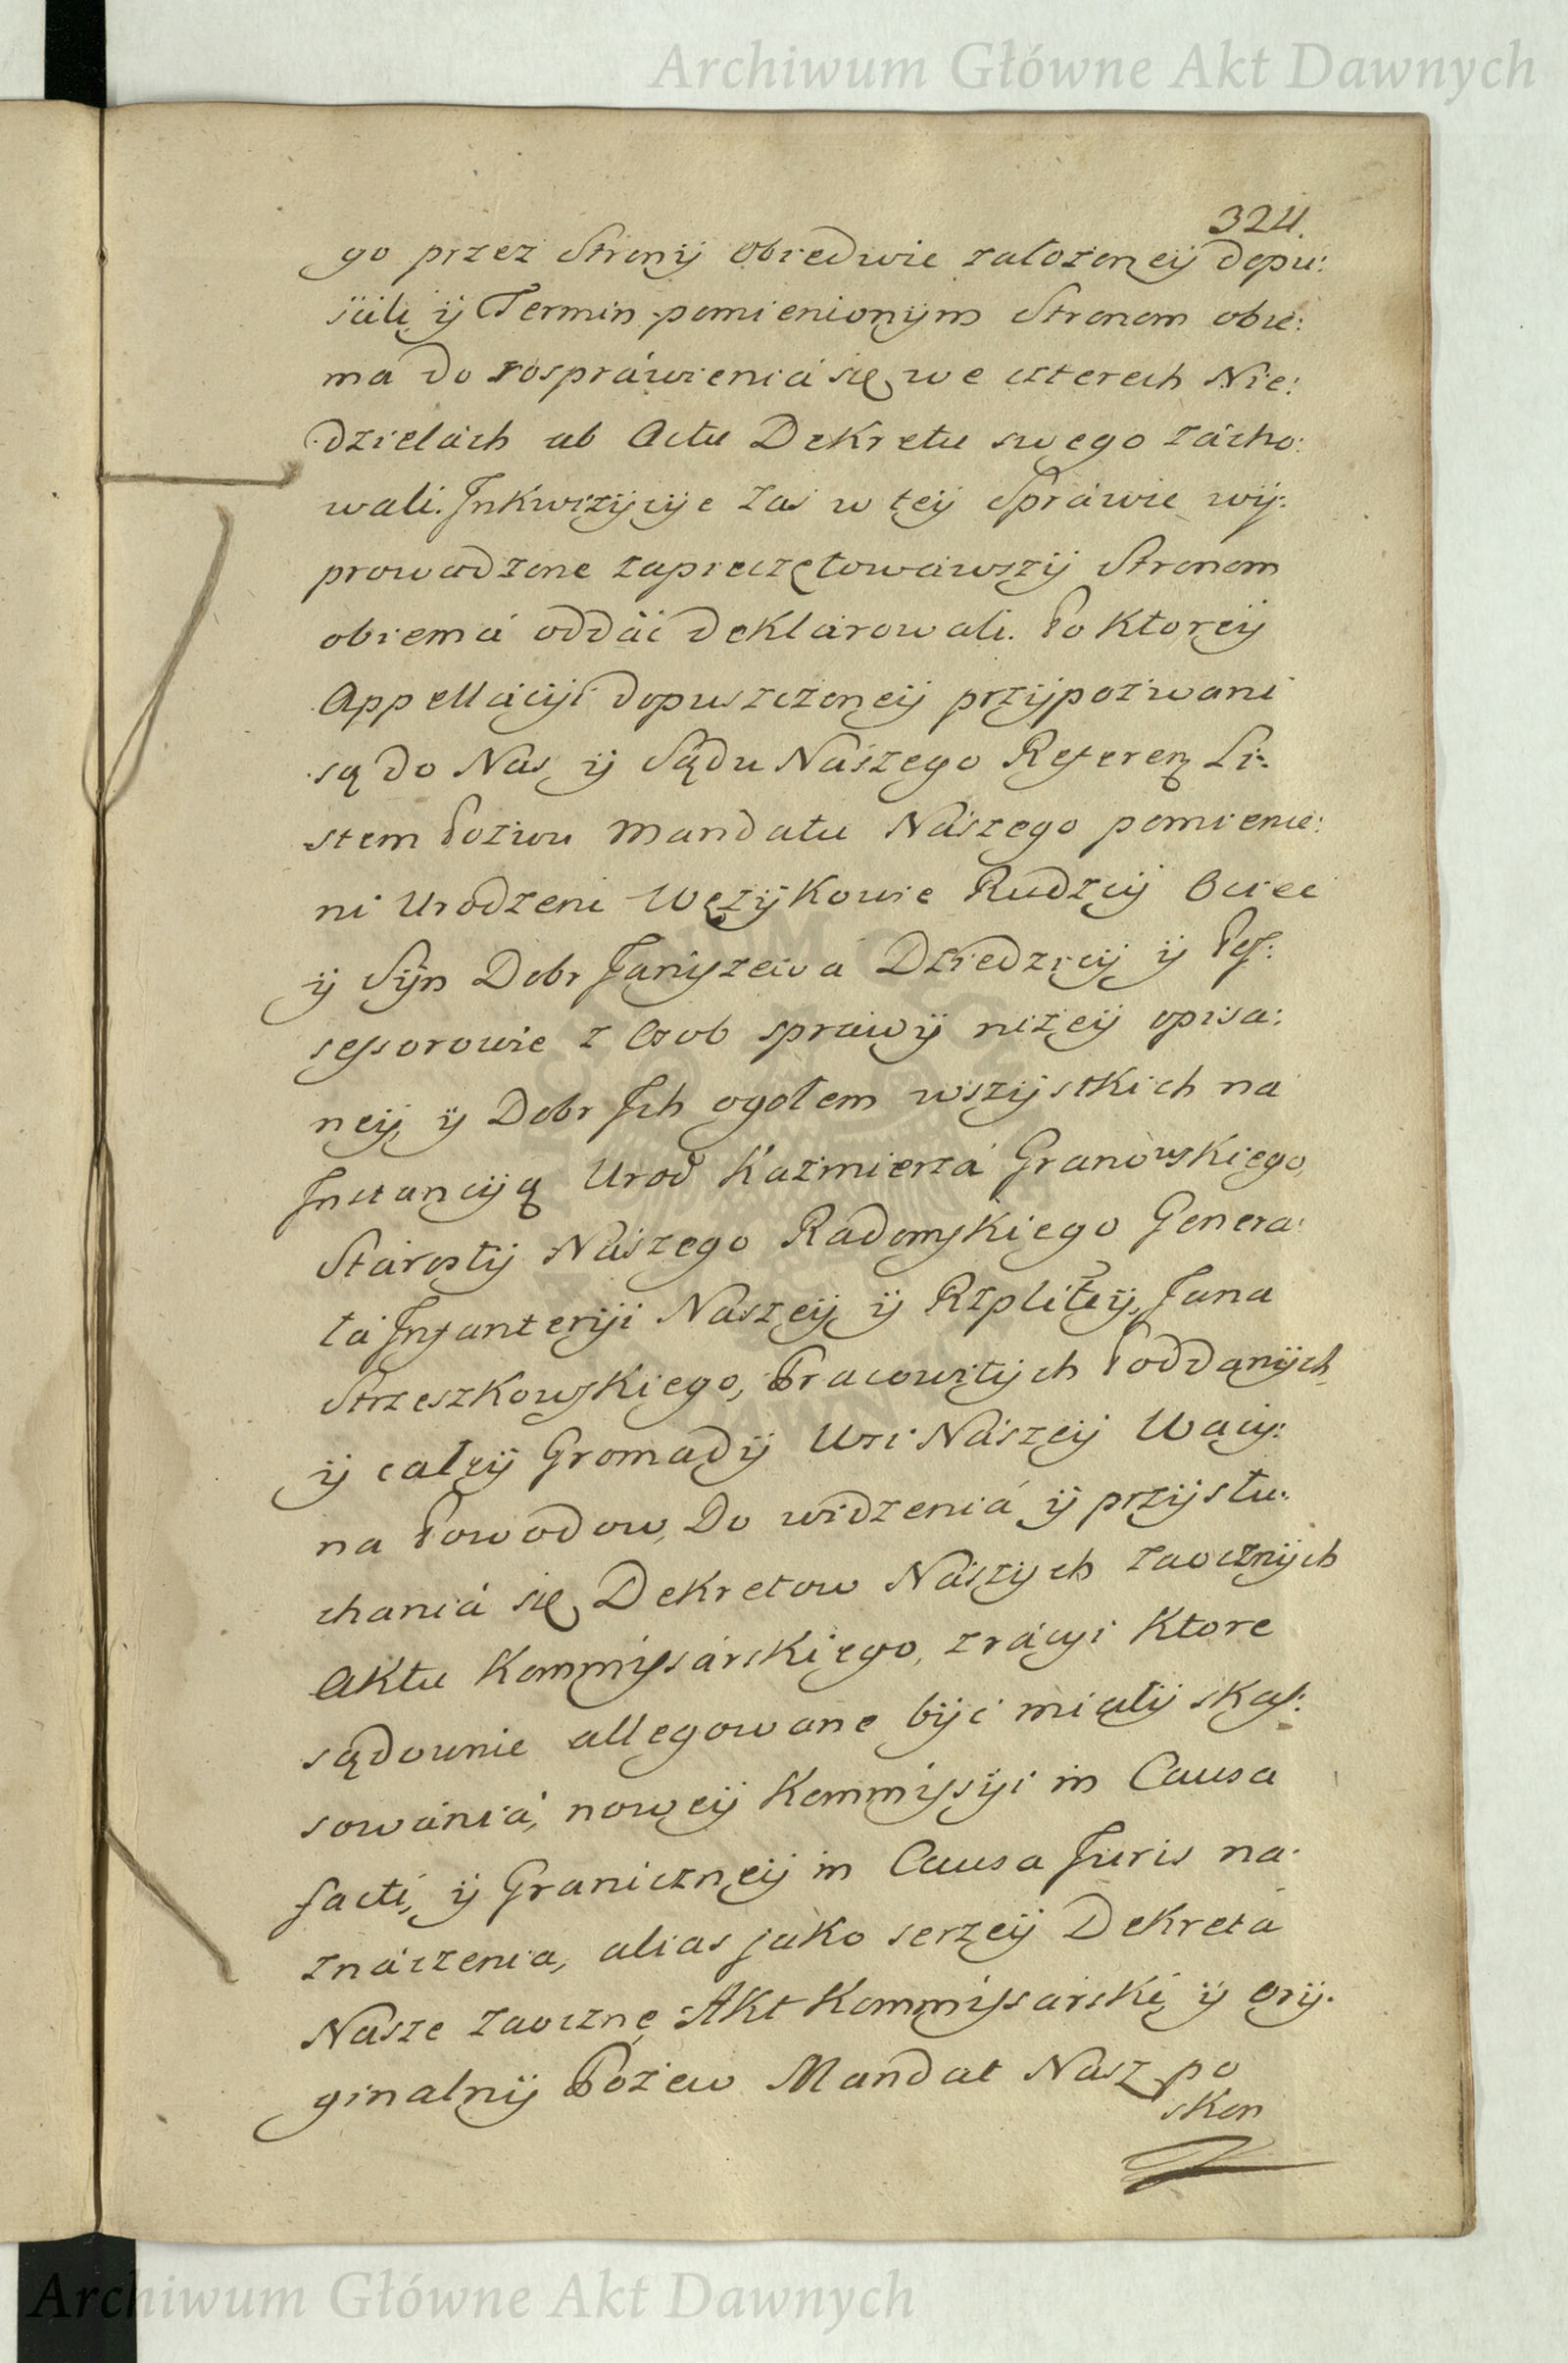 Archiwum Główne Akt Dawnych
324.
go przez Strony obiedwie założoney dopu:
ścili y Termin pomienionym Stronom obie:
ma do rospráwieniá się we czterech Nie:
dzielách ab Actu Dekretu swego zácho:
wali. Inkwizycye zaś w tey Spráwie wy:
prowadzone zapieczętowáwszy Stronom
obiemá oddáć deklárowali. Po ktorey
Appellácyi dopuszczoney przypozwani
są do Nas y Sądu Nászego Referen: Li:
stem Pozwu Mandatu Nászego pomienie:
ni Urodzeni Wężykowie Rudzcy Ociec
y Syn Dobr Janiszewa Dziedzicy y Pos:
sessorowie z Osob sprawy niżey opisa:
ney, y Dobr Jch ogołem wszystkich na
Jnstancyą Urod Kazmierzá Granowskiego,
Stárosty Nászego Radomskiego Genera:
łá Jnfanteryi Naszey y Rzplitey, Jana
Strzeszkowskiego, Pracowitych Poddanych
y całey Gromady Wsi Nászey Wacy:
na Powodow, Do widzeniá y przysłu:
chaniá się Dekretow Nászych zaocznych
Aktu Kommissárskiego, zrácyi ktore
sądownie allegowane być miáły skas:
sowániá, nowey Kommissyi in Causa
facti, y Graniczney in Causa Juris na:
znáczenia, alias jako serzey Dekretá
Nasze zaoczne Akt Kommissárski y ory:
ginalny Pozew Mandat Nasz po
skon
Archiwum Główne Akt Dawnych